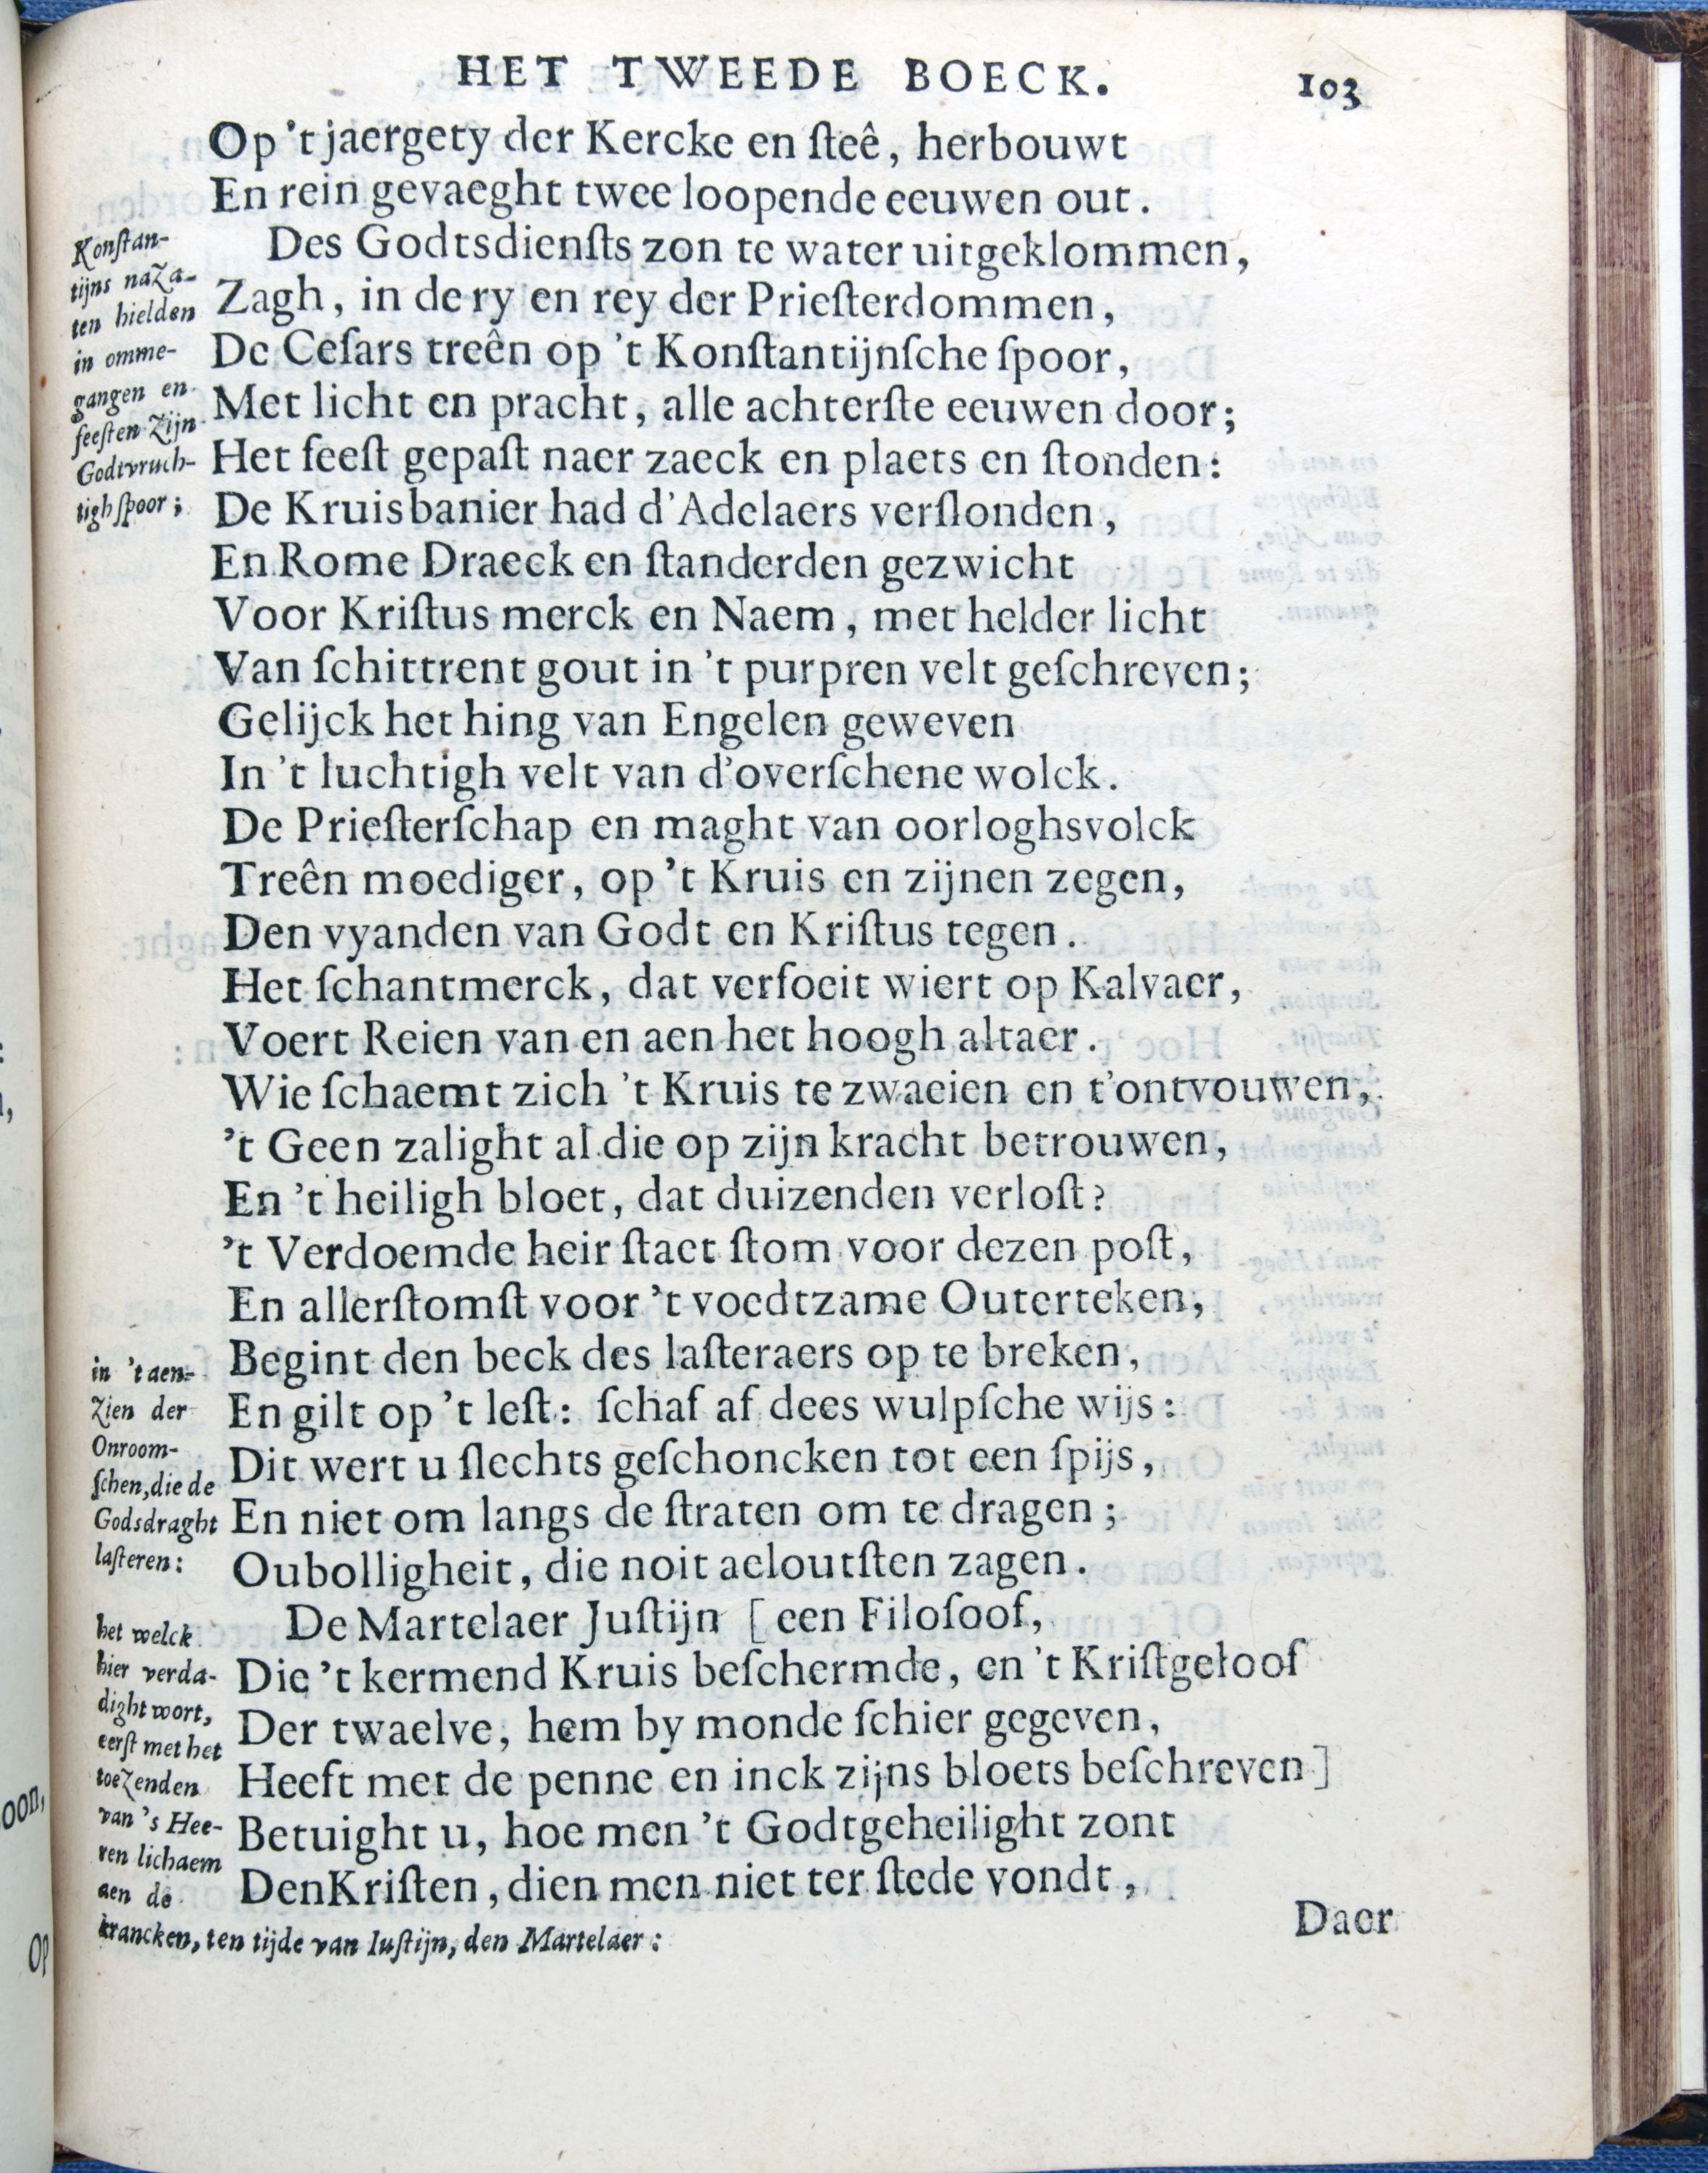 HET TWEEDE BOECK. 103
Op 't jaergety der Kercke en ſteê, herbouwt
En rein gevaeght twee loopende eeuwen out.
Des Godtsdienſts zon te water uitgeklommen,
Zagh, in de ry en rey der Prieſterdommen,
De Ceſars treên op 't Konſtantijnſche ſpoor,
Met licht en pracht, alle achterſte eeuwen door;
Het feeſt gepaſt naer zaeck en plaets en ſtonden:
De Kruisbanier had d'Adelaers verſlonden,
En Rome Draeck en ſtanderden gezwicht
Voor Kriſtus merck en Naem, met helder licht
Van ſchittrent gout in 't purpren velt geſchreven;
Gelijck het hing van Engelen geweven
In 't luchtigh velt van d'overſchene wolck.
De Prieſterſchap en maght van oorloghsvolck
Treên moediger, op 't Kruis en zijnen zegen,
Den vyanden van Godt en Kriſtus tegen.
Het ſchantmerck, dat verfoeit wiert op Kalvaer,
Voert Reien van en aen het hoogh altaer.
Wie ſchaemt zich 't Kruis te zwaeien en t'ontvouwen,
't Geen zalight al die op zijn kracht betrouwen,
En 't heiligh bloet, dat duizenden verloſt?
't Verdoemde heir ſtaet ſtom voor dezen poſt,
En allerſtomſt voor 't voedtzame Outerteken,
Begint den beck des laſteraers op te breken,
En gilt op 't leſt: ſchaf af dees wulpſche wijs:
Dit wert u ſlechts geſchoncken tot een ſpijs,
En niet om langs de ſtraten om te dragen;
Oubolligheit, die noit aeloutſten zagen.
De Martelaer Juſtijn [een Filoſoof,
Die 't kermend Kruis beſchermde, en 't Kriſtgeloof
Der twaelve, hem by monde ſchier gegeven,
Heeft met de penne en inck zijns bloets beſchreven]
Betuight u, hoe men 't Godtgeheilight zont
DenKriſten, dien men niet ter ſtede vondt,
Daer
Konſtan-
tijns naza-
ten hielden
in omme-
gangen en
feeſten zijn
Godtvruch-
tigh ſpoor;
in 't aen-
zien der
Onroom-
ſchen, die de
Godsdraght
laſteren:
het welck
hier verda-
dight wort,
eerſt met het
toezenden
van 's Hee-
ren lichaem
aen de
krancken, ten tijde van Iuſtijn, den Martelaer:
oon,
Op